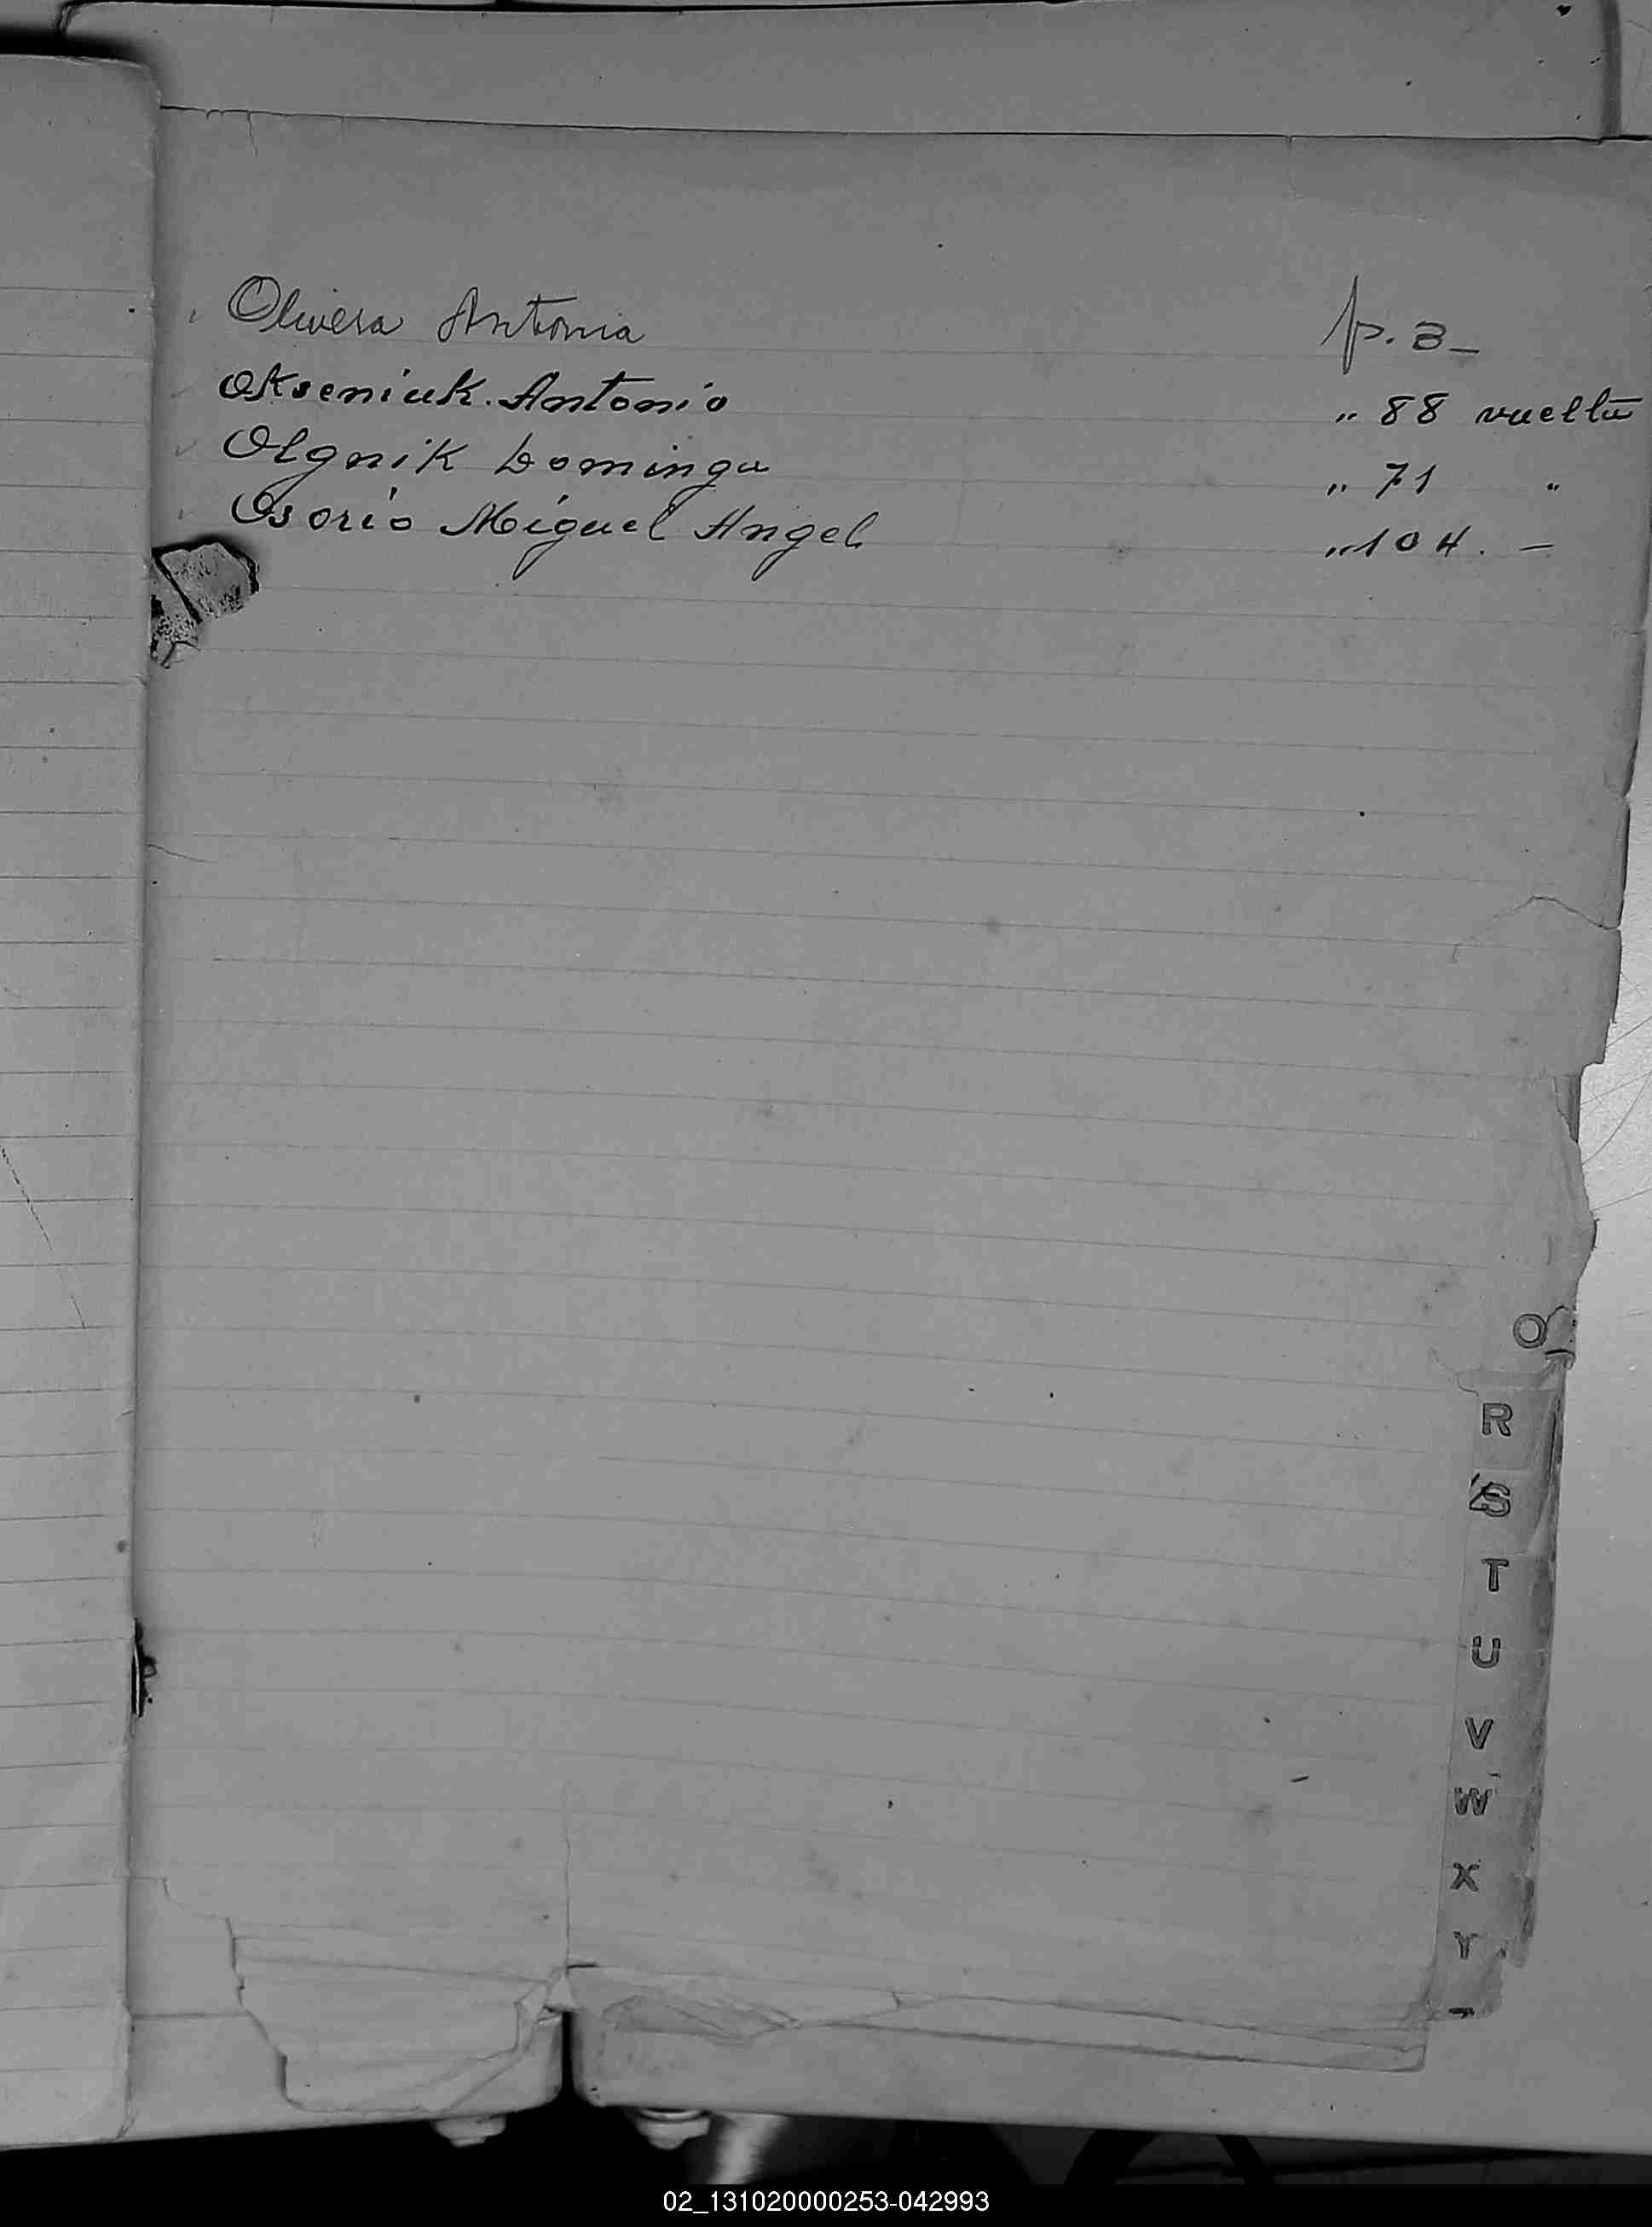 Olivera Antonia p. 3_
Okseniuk. Antonio " 88 vuelta
Olgnik Dominga " 71 "
Osorio Miguel Angel " 104. —
O
R
S
T
U
V
W
X
Y
02_131020000253-042993